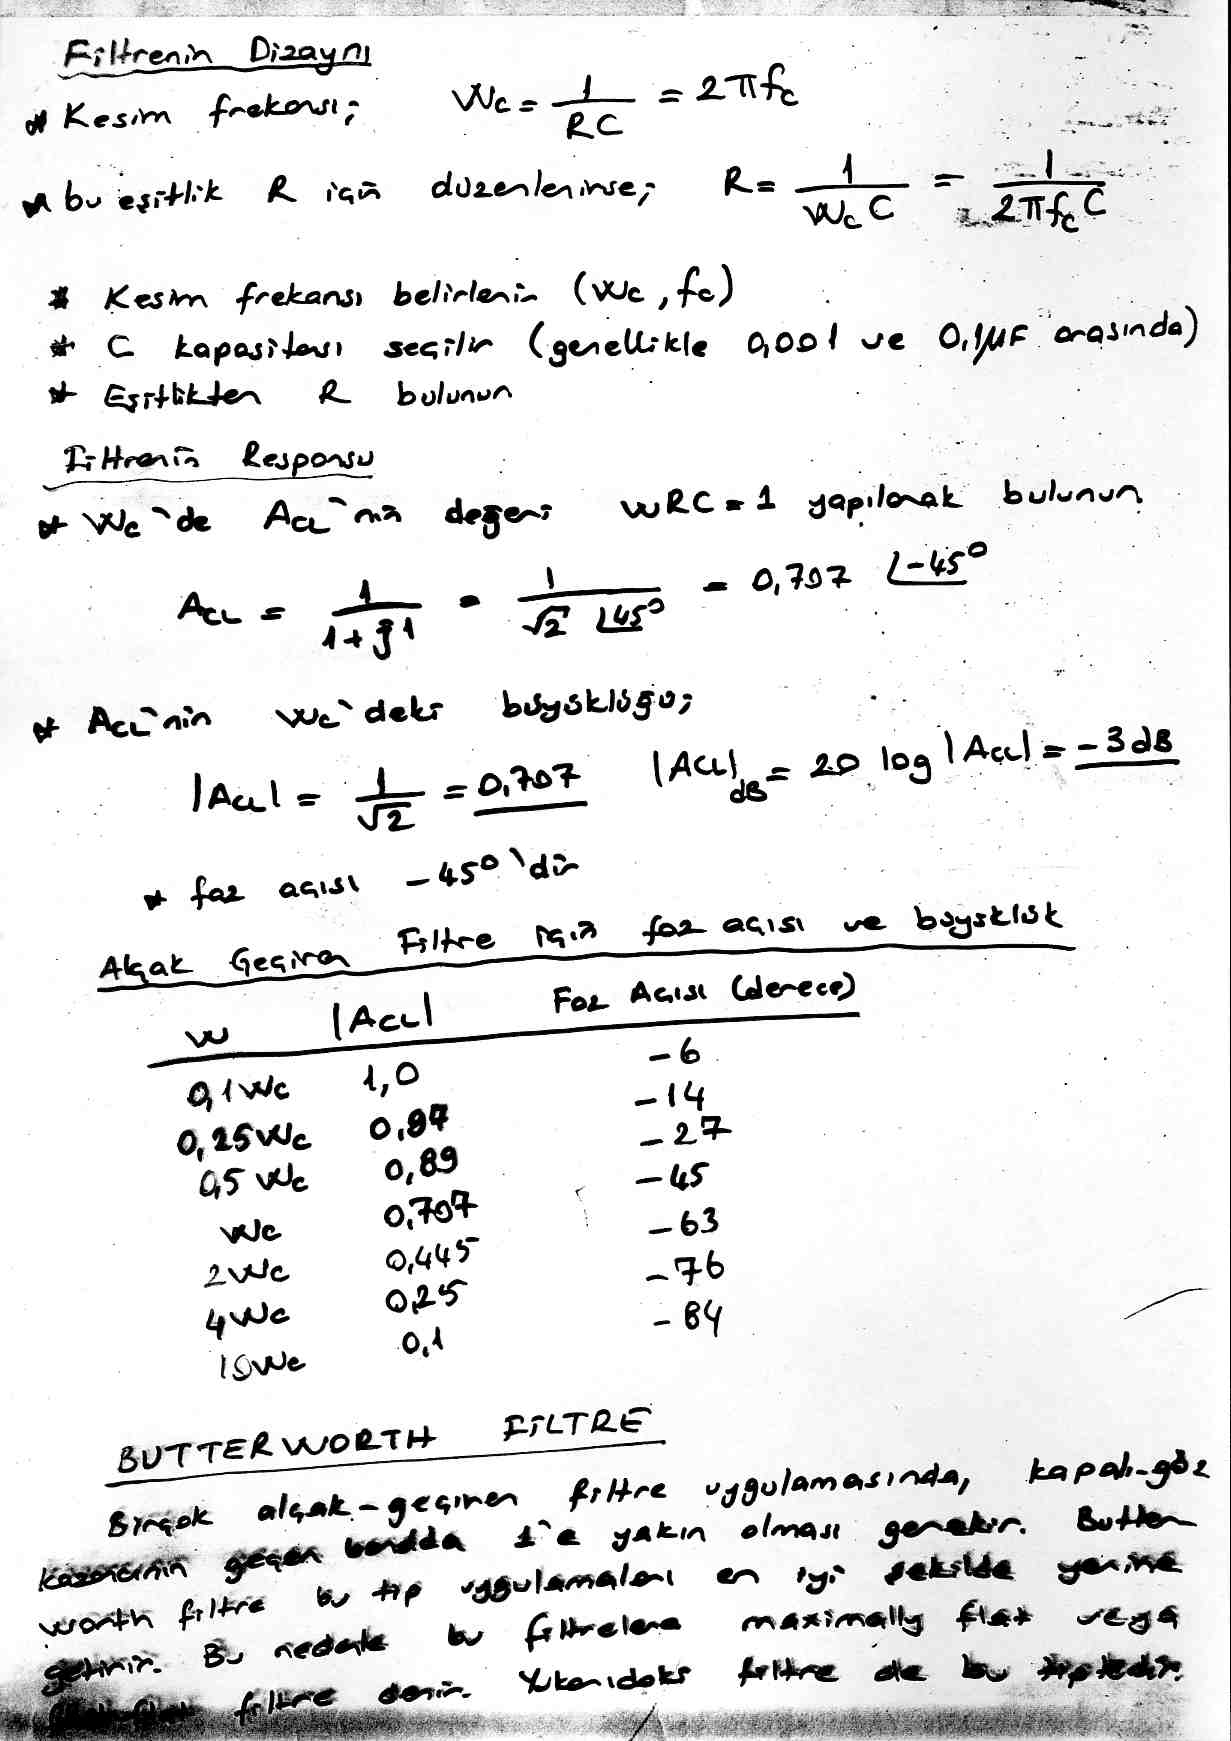 Filtrenin Dizaynı
* Kesim frekansı; Wc = 1/RC = 2πfc
* bu eşitlik R için düzenlenirse; R = 1/(Wc C) = 1/(2πfc C)
* Kesim frekansı belirlenir (Wc, fc)
* C kapasitesi seçilir (genellikle 0,001 ve 0,1µF arasında)
* Eşitlikten R bulunur
Filtrenin Responsu
* Wc'de ACL'nin değeri WRC = 1 yapılarak bulunur.
ACL = 1/(1+j1) = 1/(√2 ∠45°) = 0,707 ∠-45°
* ACL'nin Wc'deki büyüklüğü;
|ACL| = 1/√2 = 0,707 |ACL|dB = 20 log |ACL| = -3dB
* faz açısı -45°'dir
Alçak Geçiren Filtre için faz açısı ve büyüklük
W |ACL| Faz Açısı (derece)
0,1Wc 1,0 -6
0,25Wc 0,97 -14
0,5 Wc 0,89 -27
Wc 0,707 -45
2Wc 0,445 -63
4Wc 0,25 -76
10Wc 0,1 -84
BUTTERWORTH FİLTRE
Birçok alçak-geçiren filtre uygulamasında, kapalı-göz
kazancının geçen bandda 1'e yakın olması gerekir. Butter
worth filtre bu tip uygulamaları en iyi şekilde yerine
getirir. Bu nedenle bu filtrelere maximally flat veya
filtre denir. Yukarıdaki filtre de bu tiptedir.